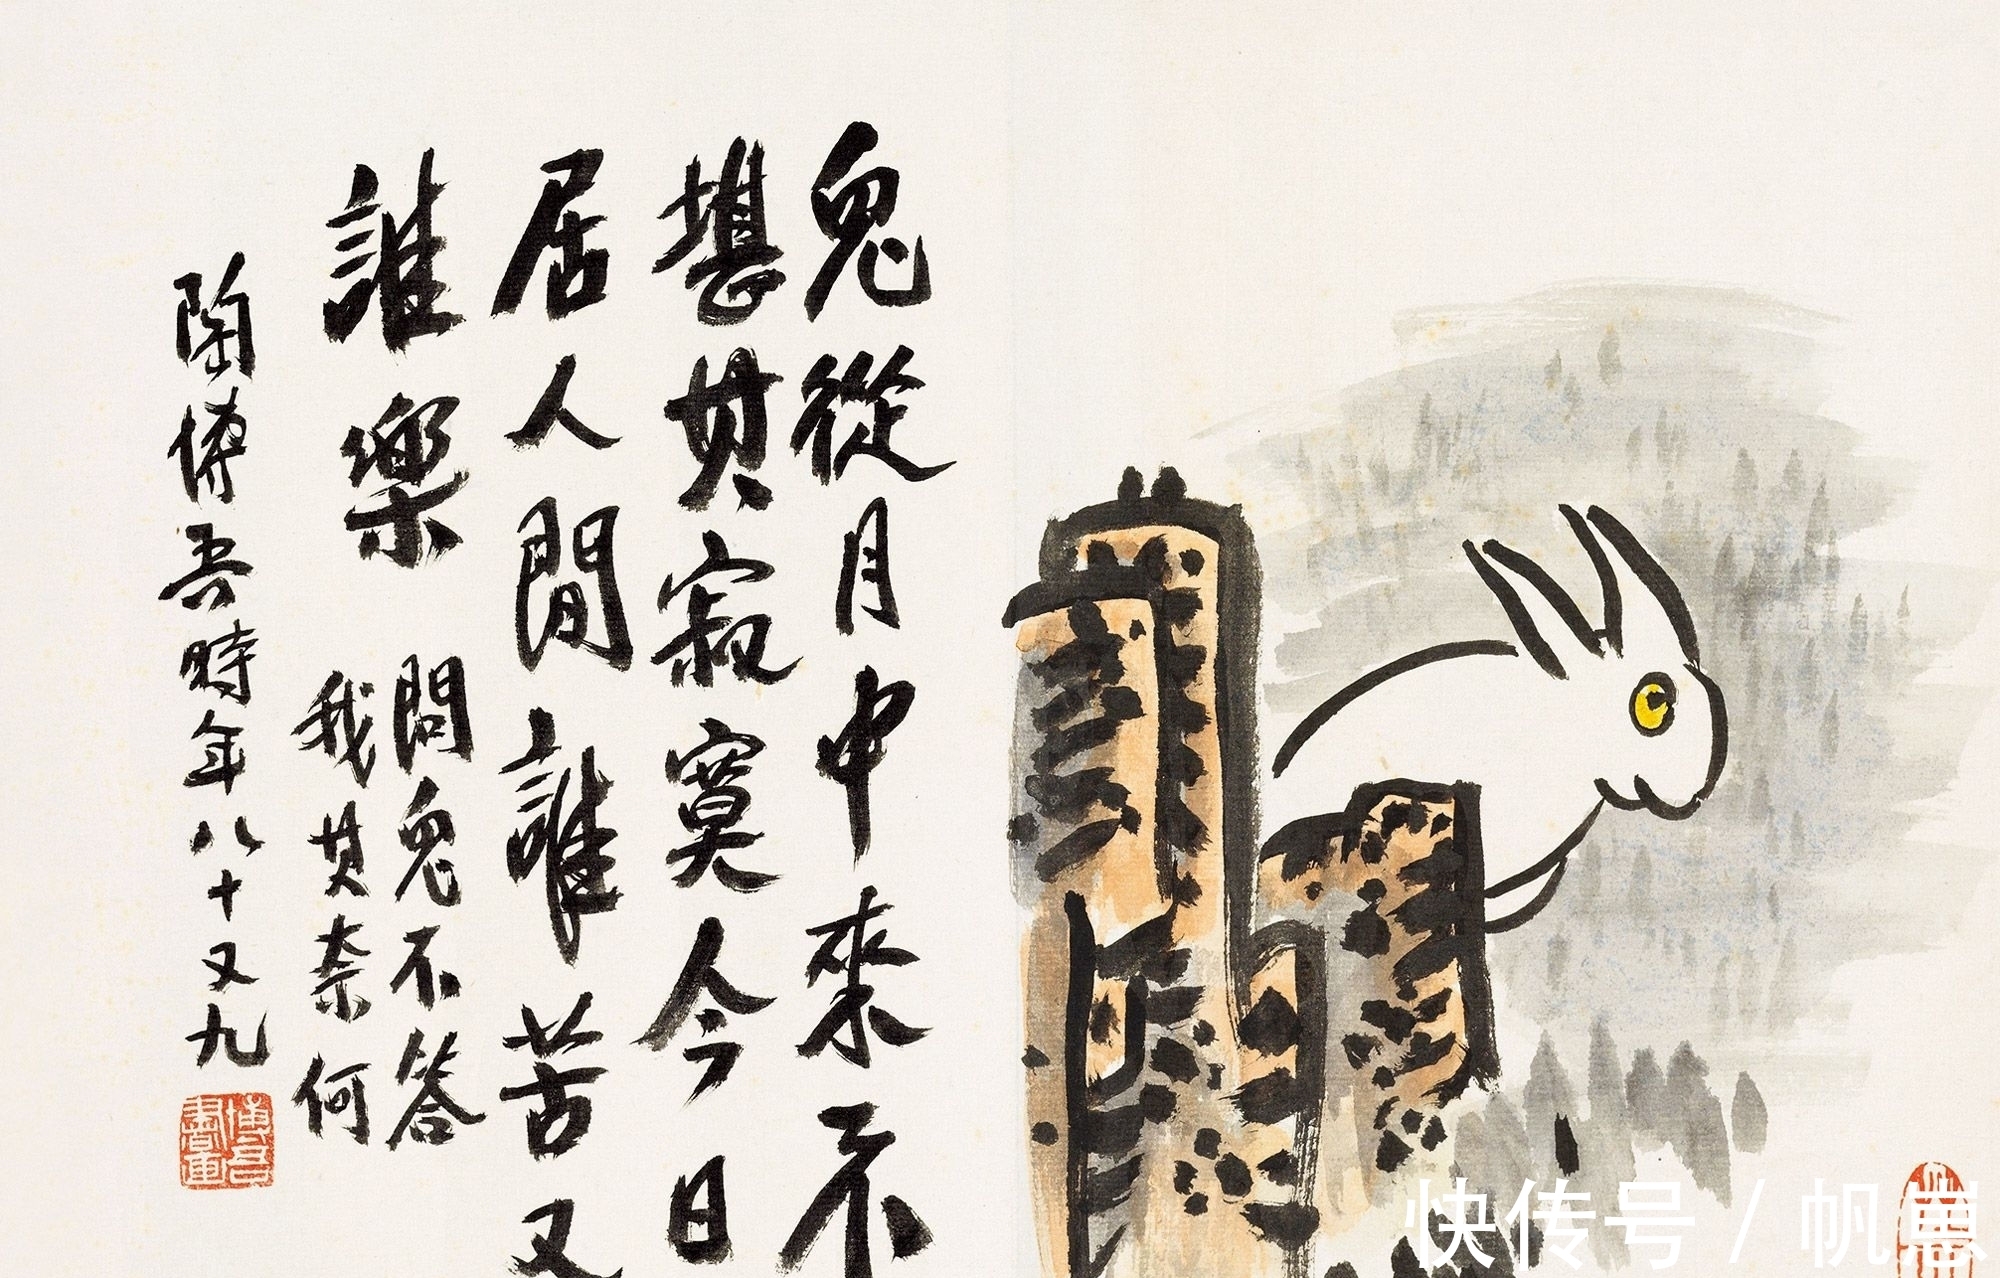 兔從月中來不
堪其寂寞今日
居人間誰苦又
誰樂
問兔不答
我其奈何
陶博吾時年八十又九
博吾書画
快传号 / 帆崽